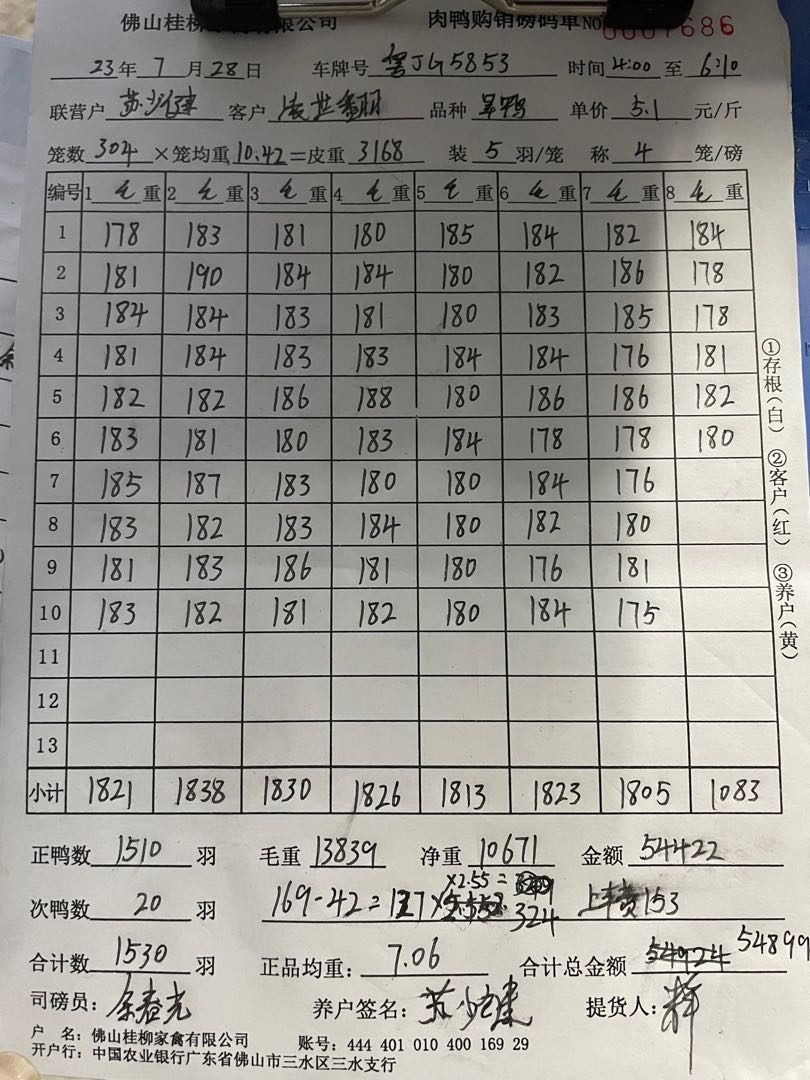 佛山桂柳 有限公司 肉鸭购销磅码单 No 0007686
23年 7 月 28 日 车牌号 粤JG5853 时间 4:00 至 6:10
联营户 苏 建 客户 品种 单价 5.1 元/斤
笼数 304 ×笼均重 10.42 =皮重 3168 装 5 羽/笼 称 4 笼/磅
编号 1 毛 重 2 毛 重 3 毛 重 4 毛 重 5 毛 重 6 毛 重 7 毛 重 8 毛 重
1 178 183 181 180 185 184 182 184
2 181 190 184 184 180 182 186 178
3 184 184 183 181 180 183 185 178
4 181 184 183 183 184 184 176 181
5 182 182 186 188 180 186 186 182
6 183 181 180 183 184 178 178 180
7 185 187 183 180 180 184 176
8 183 182 183 184 180 182 180
9 181 183 186 181 180 176 181
10 183 182 181 182 180 184 175
11
12
13
小计 1821 1838 1830 1826 1813 1823 1805 1083
①存根(白) ②客户(红) ③养户(黄)
正鸭数 1510 羽 毛重 13839 净重 10671 金额 54422
×2.55=
次鸭数 20 羽 169-42=127 324 上车费153
合计数 1530 羽 正品均重: 7.06 合计总金额 54924 54899
司磅员: 余 养户签名: 苏 建 提货人: 辉
户 名: 佛山桂柳家禽有限公司 账号: 444 401 010 400 169 29
开户行: 中国农业银行广东省佛山市三水区三水支行